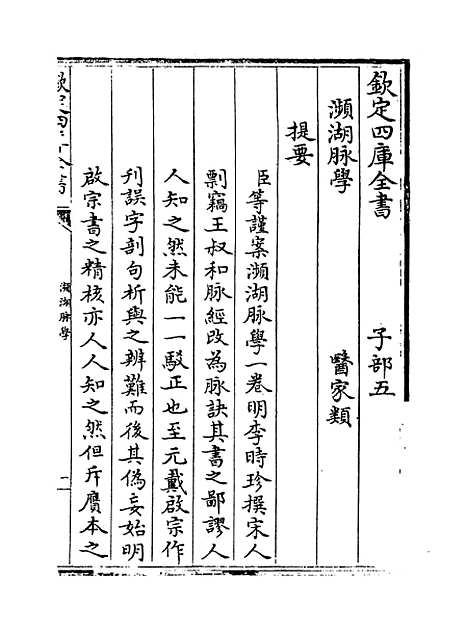 欽定四庫全書　子部五
瀕湖脉學　醫家類
提要
臣等謹案瀕湖脉學一卷明李時珍撰宋人
剽竊王叔和脉經改為脉訣其書之鄙謬人
人知之然未能一一駁正也至元戴啟宗作
刋誤字剖句析與之辨難而後其偽妄始明
啟宗書之精核亦人人知之然但斥贋本之
欽定四庫全書
瀕湖脉學
一